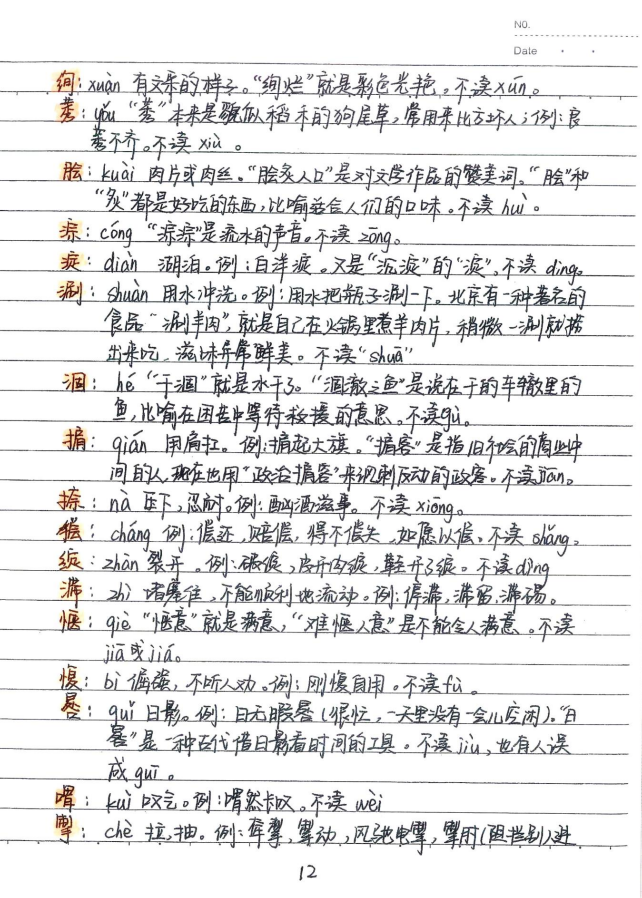 NO.
Date
绚：xuàn 有文采的样子。“绚烂”就是彩色光艳。不读xún。
莠：yǒu “莠”本来是貌似稻禾的狗尾草，常用来比方坏人；例：良
莠不齐。不读xiù。
脍：kuài 肉片或肉丝。“脍炙人口”是对文学作品的赞美词。“脍”和
“炙”都是好吃的东西，比喻适合人们的口味。不读huì。
淙：cóng “淙淙”是流水的声音。不读zōng。
淀：diàn 湖泊。例：白洋淀。又是“沉淀”的“淀”，不读dìng。
涮：shuàn 用水冲洗。例：用水把瓶子涮一下。北京有一种著名的
食品“涮羊肉”，就是自己在火锅里煮羊肉片，稍微一涮就捞
出来吃，滋味异常鲜美。不读“shuā”
涸：hé “干涸”就是水干了。“涸辙之鱼”是说在干的车辙里的
鱼，比喻在困苦中等待救援的意思。不读gù。
掮：qián 用肩扛。例：掮起大旗。“掮客”是指旧社会的商业中
间的人，现在也用“政治掮客”来讽刺反动的政客。不读jiān。
捺：nà 压下，忍耐。例：酗酒滋事。不读xiōng。
偿：cháng 例：偿还，赔偿，得不偿失，如愿以偿。不读shǎng。
绽：zhàn 裂开。例：破绽，皮开肉绽，鞋开了绽。不读dìng
滞：zhì 堵塞住，不能顺利地流动。例：停滞，滞留，滞碍。
惬：qiè “惬意”就是满意，“难惬人意”是不能令人满意。不读
jiā或jiá。
愎：bì 倔强，不听人劝。例：刚愎自用。不读fù。
晷：guǐ 日影。例：日无暇晷（很忙，一天里没有一会儿空闲）。“日
晷”是一种古代借日影看时间的工具。不读jiù，也有人误
成guī。
喟：kuì 叹气。例：喟然长叹。不读wèi
掣：chè 拉，抽。例：牵掣，掣动，风驰电掣，掣肘（阻拦别人进
12